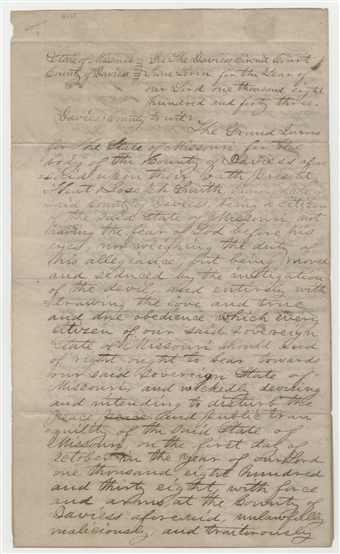 State of Missouri In The Daviess Circuit Court
County of Daviess June Term for the Year of
our Lord one thousand eight
hundred and forty three.
Daviess County to wit:
The Grand Jurors
for the State of Missouri for the
body of the County of Daviess afore
said upon their oath present,
That Joseph Smith Junior late of
Said County of Daviess, being a citizen
of the said State of Missouri, not
having the fear of God before his
eyes, nor weighing the duty of
his allegiance, but being moved
and seduced by the instigation
of the devil, and entirely with
drawing the love and true
and due obedience which every
citizen of our said Sovereign
State of Missouri should and
of right ought to bear towards
our said Sovereign State of
Missouri, and wickedly devising
and intending to disturb the
peace and public tran
quility of the said State of
Missouri, on the first day of
October in the year of our Lord
one thousand eight hundred
and thirty eight, with force
and arms, at the County of
Daviess aforesaid, unlawfully
maliciously and traitorously